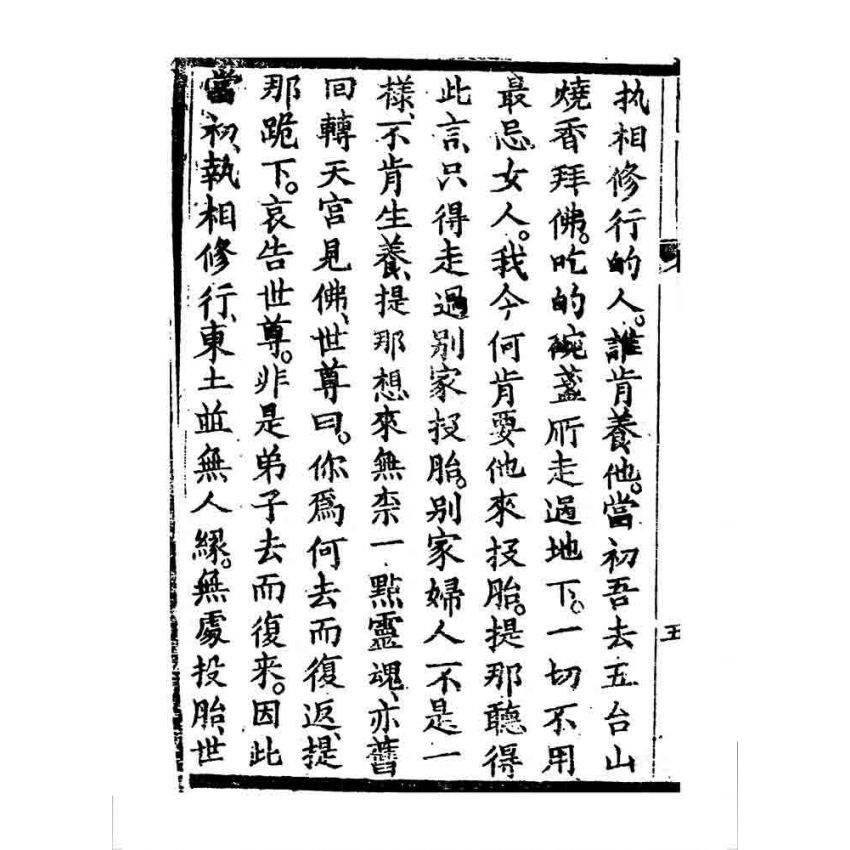 执相修行的人。誰肯養他。當初吾去五台山
燒香拜佛。吃的碗盞所走過地下。一切不用
最忌女人。我今何肯要他來投胎。提那聽得
此言、只得走過别家投胎。别家婦人不是一
樣、不肯生養、提那想來無柰一點靈魂、亦舊
回轉天宫見佛、世尊曰。你爲何去而復返、提
那跪下。哀告世尊。非是弟子去而復来。因此
當初、執相修行、東土並無人緣。無處投胎、世
五